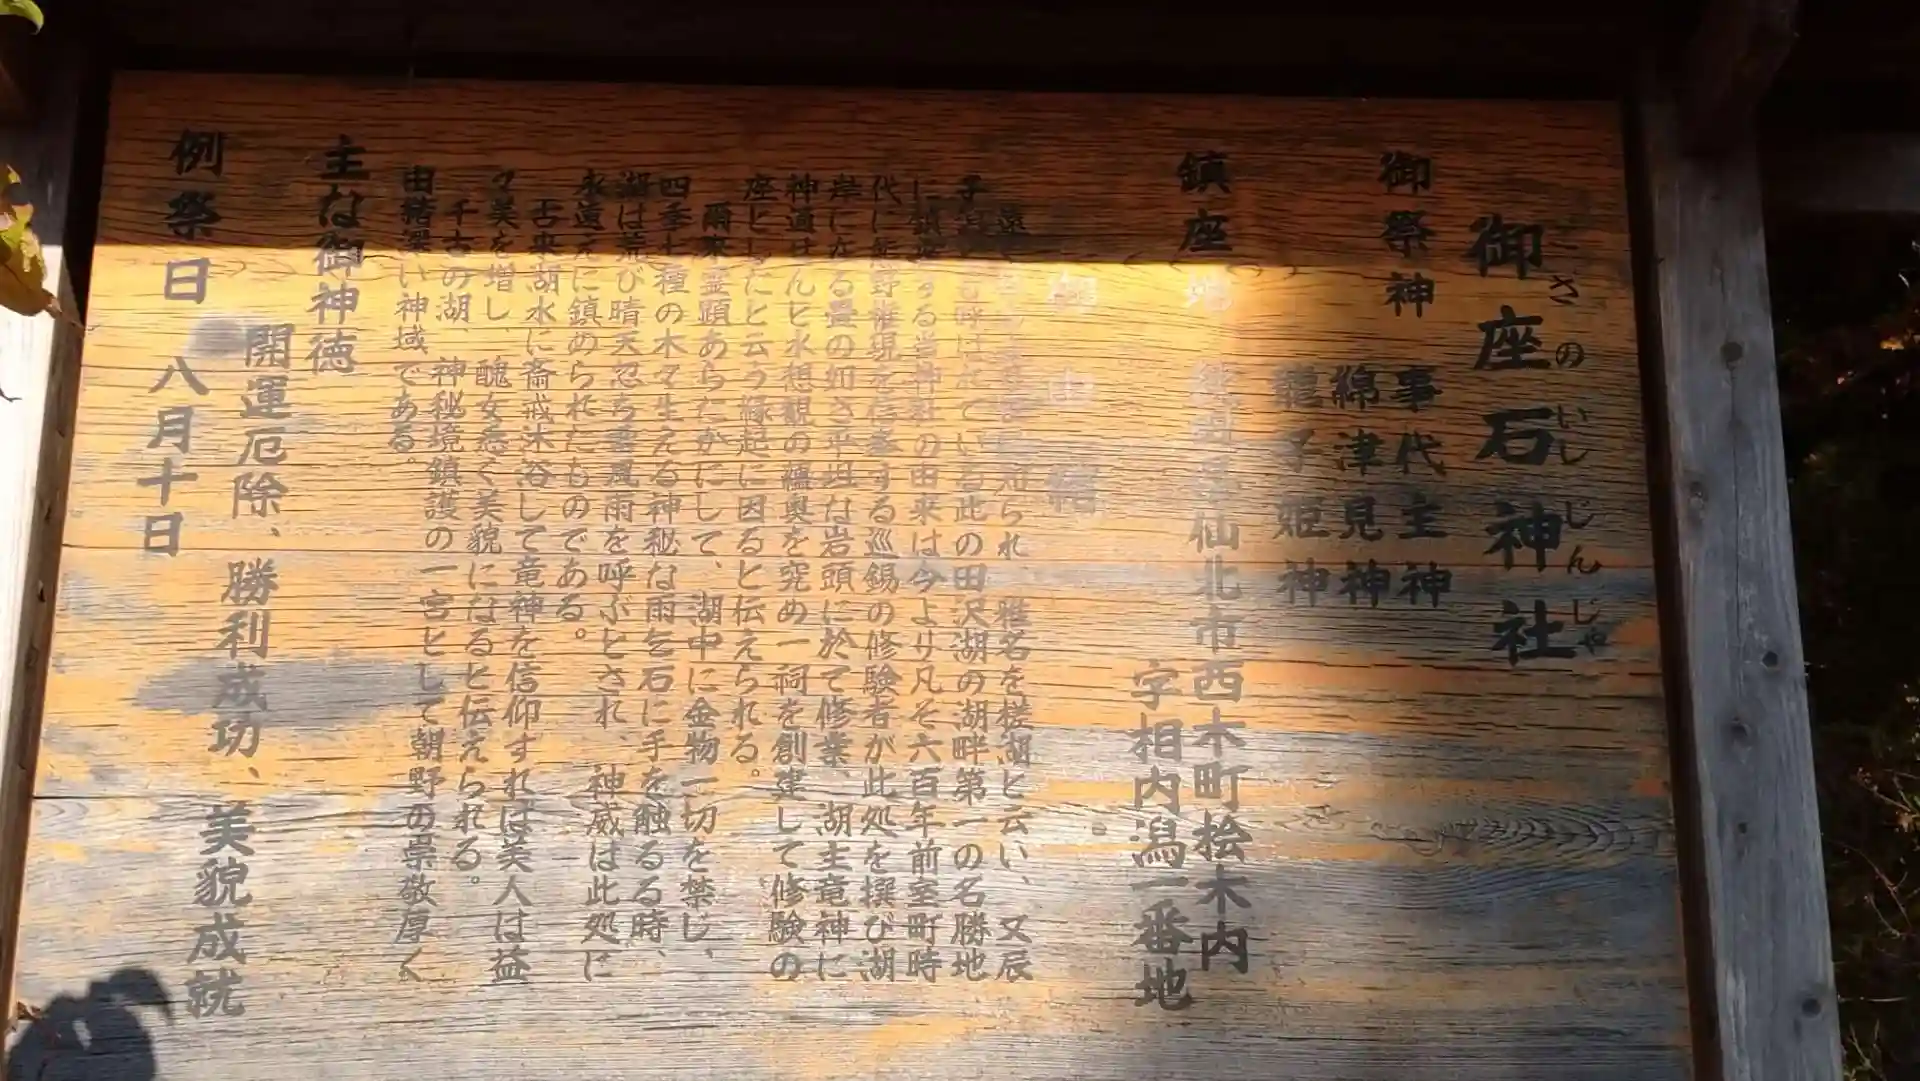 御座石神社
ござのいしじんじゃ
御祭神
事代主神
綿津見神
龍子姫神
鎮座地
秋田県仙北市西木町桧木内
字相内潟一番地
御由緒
知られ、雅名を槎湖と云い、又辰
子潟とも呼ばれている此の田沢湖の湖畔第一の名勝地
に鎮座する当神社の由来は今より凡そ六百年前室町時
代に熊野権現を信奉する巡錫の修験者が此処を撰び湖
岸になる畳の如き平坦な岩頭に於て修業、湖主竜神に
神通せんと水想観の蘊奥を究め一祠を創建して修験の
座としたと云う縁起に因ると伝えられる。
爾来霊顕あらたかにして、湖中に金物一切を禁じ、
四季七種の木々生える神秘な雨乞石に手を触るる時、
湖は荒び晴天忽ち雷風雨を呼ぶとされ、神威は此処に
永遠に鎮められたものである。
古来湖水に斎戒沐浴して竜神を信仰すれば美人は益
々美を増し、醜女悉く美貌になると伝えられる。
千古の湖、神秘境鎮護の一宮として朝野の崇敬厚く
由緒深い神域である。
主な御神徳
開運厄除、勝利成功、美貌成就
例祭日 八月十日